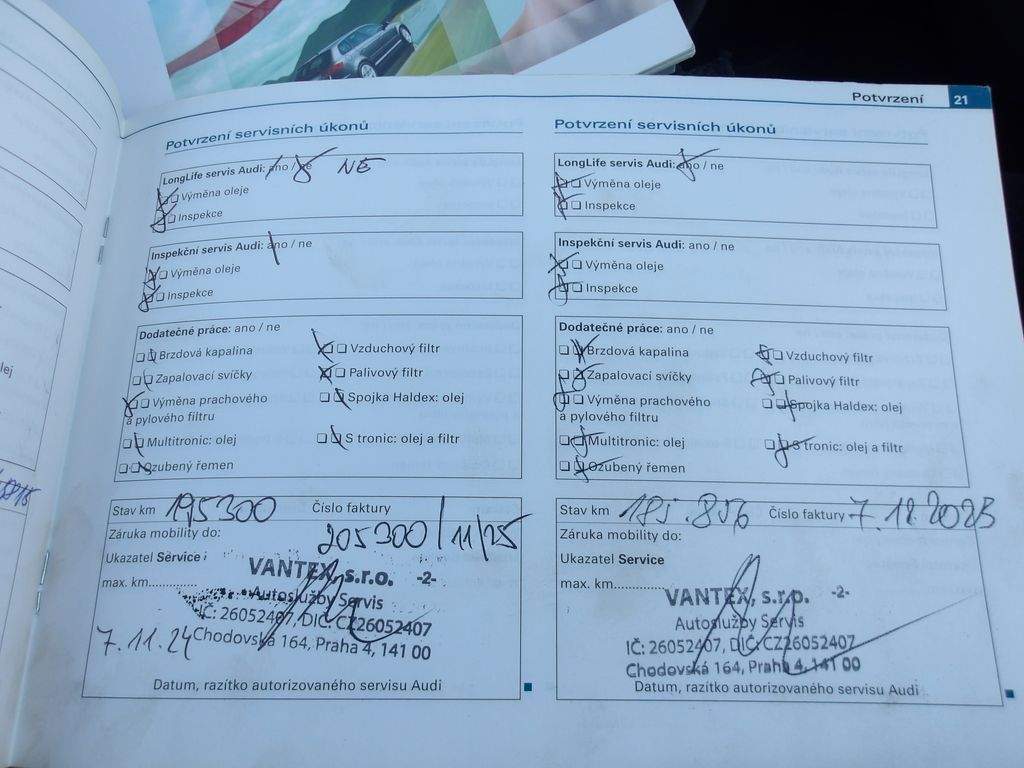 Potvrzení 21
Potvrzení servisních úkonů
LongLife servis Audi: ano / ne NE
Výměna oleje
Inspekce
Inspekční servis Audi: ano / ne
Výměna oleje
Inspekce
Dodatečné práce: ano / ne
Brzdová kapalina
Vzduchový filtr
Zapalovací svíčky
Palivový filtr
Výměna prachového
a pylového filtru
Spojka Haldex: olej
Multitronic: olej
S tronic: olej a filtr
Ozubený řemen
Stav km 195300 Číslo faktury
Záruka mobility do:
205300/11/25
Ukazatel Service
max. km.............
VANTEX, s.r.o. -2-
Autoslužby Servis
IČ: 26052407, DIČ: CZ26052407
Chodovská 164, Praha 4, 141 00
7.11.24
Datum, razítko autorizovaného servisu Audi
Potvrzení servisních úkonů
LongLife servis Audi: ano / ne
Výměna oleje
Inspekce
Inspekční servis Audi: ano / ne
Výměna oleje
Inspekce
Dodatečné práce: ano / ne
Brzdová kapalina
Vzduchový filtr
Zapalovací svíčky
Palivový filtr
Výměna prachového
a pylového filtru
Spojka Haldex: olej
Multitronic: olej
S tronic: olej a filtr
Ozubený řemen
Stav km 185.856 Číslo faktury 7.12.2023
Záruka mobility do:
Ukazatel Service
max. km.............
VANTEX, s.r.o. -2-
Autoslužby Servis
IČ: 26052407, DIČ: CZ26052407
Chodovská 164, Praha 4, 141 00
Datum, razítko autorizovaného servisu Audi